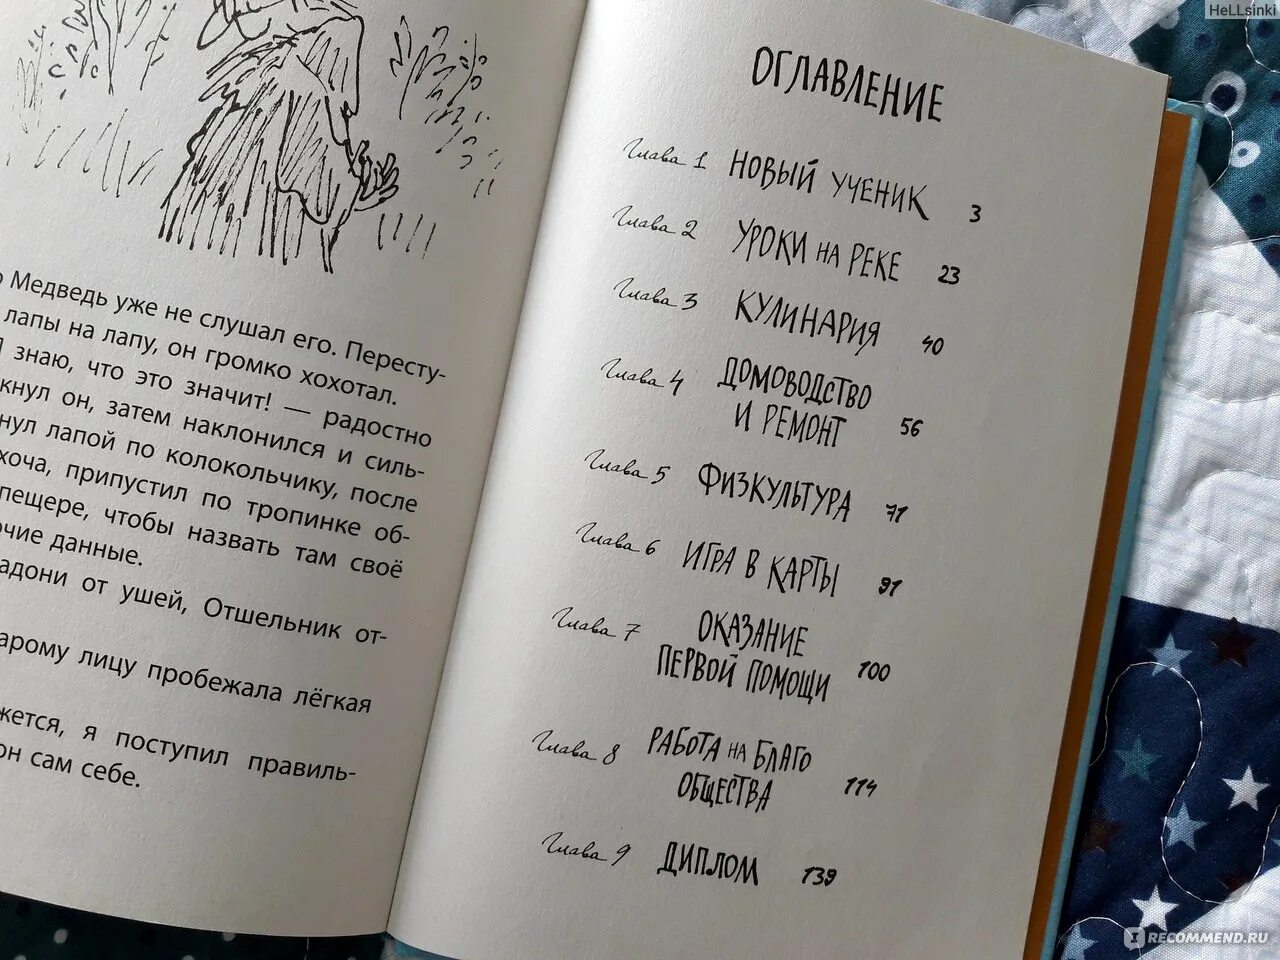 Медведь уже не слушал его. Пересту-
лапы на лапу, он громко хохотал.
знаю, что это значит! — радостно
он, затем наклонился и силь-
лапой по колокольчику, после
припустил по тропинке об-
пещере, чтобы назвать там своё
данные.
от ушей, Отшельник от-
лицу пробежала лёгкая
я поступил правиль-
он сам себе.
ОГЛАВЛЕНИЕ
Глава 1 НОВЫЙ УЧЕНИК 3
Глава 2 УРОКИ НА РЕКЕ 23
Глава 3 КУЛИНАРИЯ 40
Глава 4 ДОМОВОДСТВО
И РЕМОНТ 56
Глава 5 ФИЗКУЛЬТУРА 71
Глава 6 ИГРА В КАРТЫ 91
Глава 7 ОКАЗАНИЕ
ПЕРВОЙ ПОМОЩИ 100
Глава 8 РАБОТА НА БЛАГО
ОБЩЕСТВА 114
Глава 9 ДИПЛОМ 139
HeLLsinki
IRECOMMEND.RU